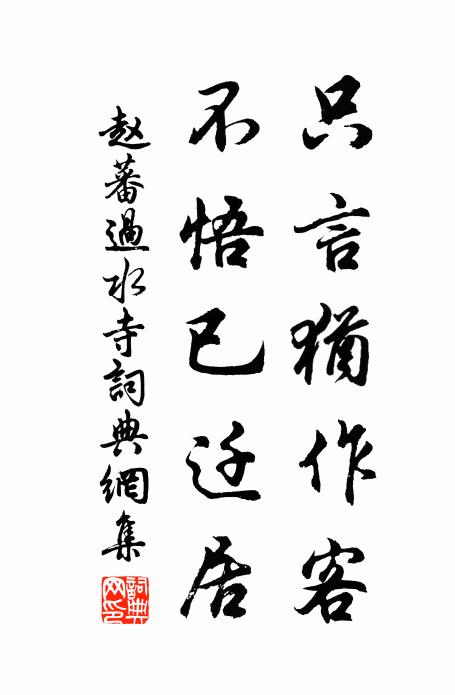 只言猶作客
不悟已迁居
赵蕃過水寺詞典網集
詞典網印